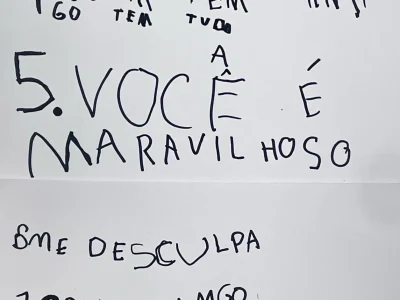 GO TEM TUDO
A
5. VOCÊ É
MARAVILHOSO
6ME DESCULPA